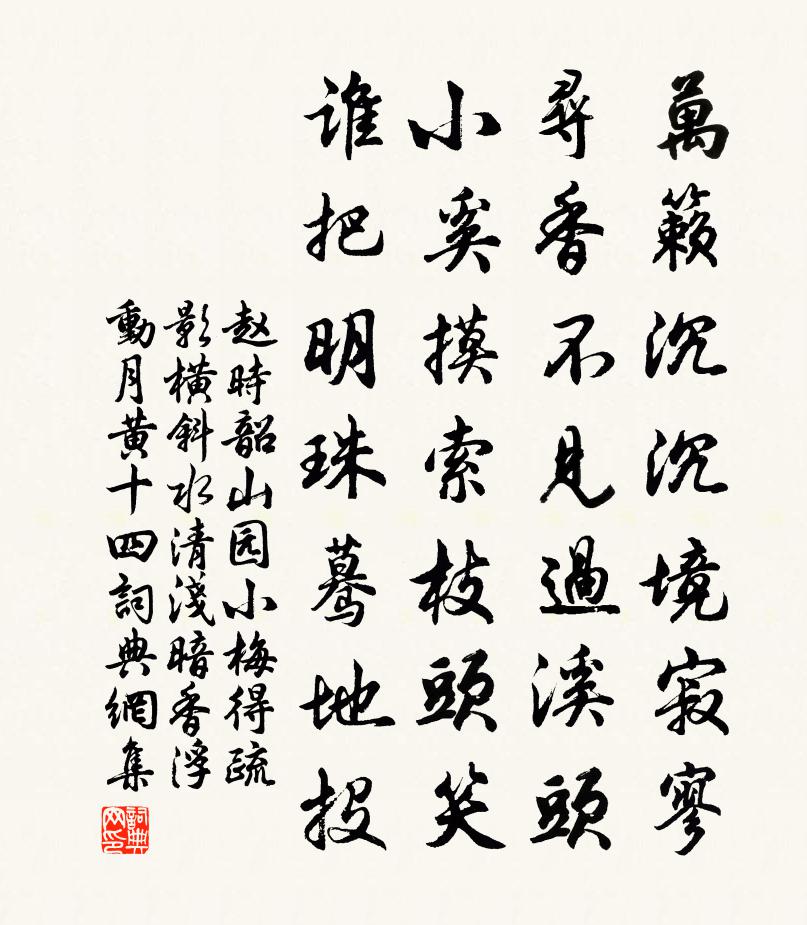 萬籟沉沉境寂寥
尋香不見過溪頭
小奚摸索枝頭笑
谁把明珠蓦地投
赵時韶山园小梅得疏
影橫斜水清淺暗香浮
動月黄十四詞典網集
詞典网印